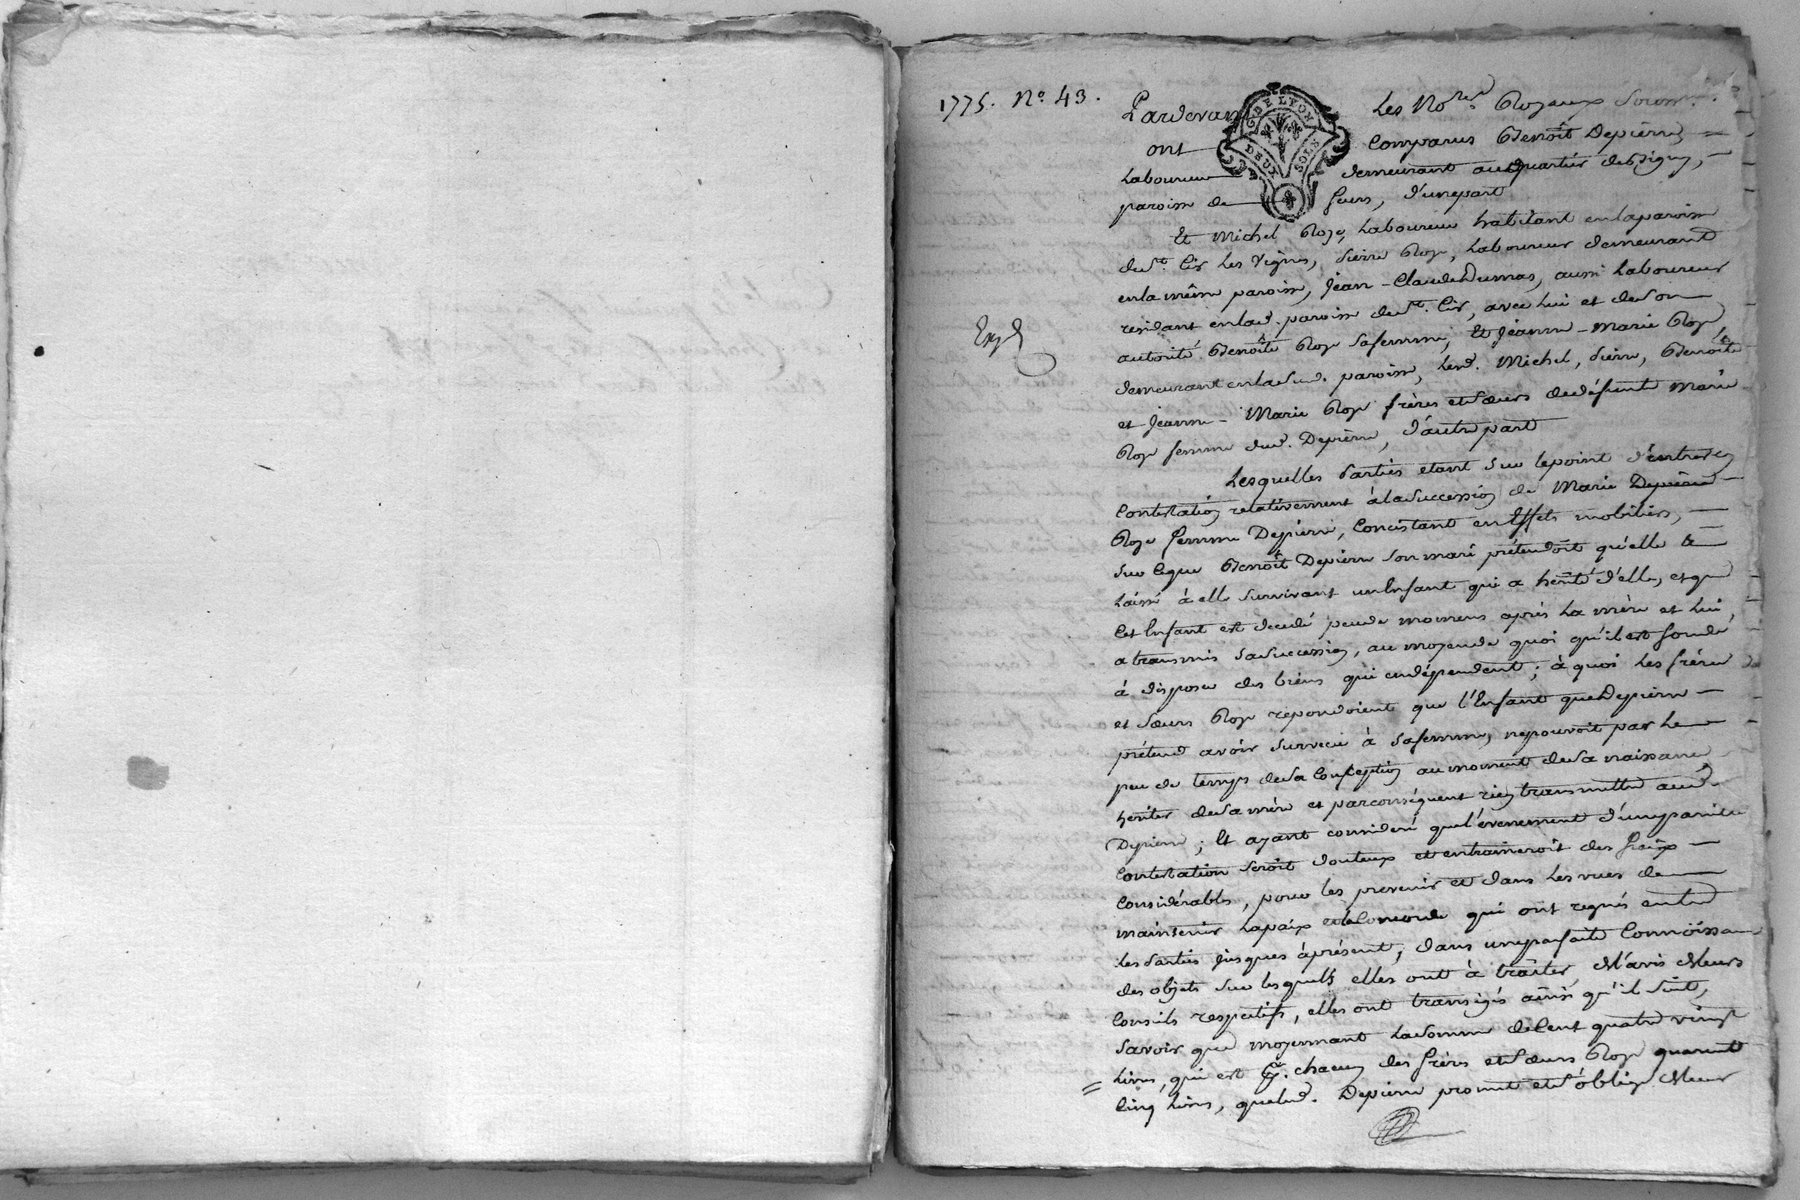 1775. No. 43.
G. DE LYON
DEUX SOLS
Pardevant Les Nores. Royaux Souss.
ont comparus Benoît Depierre,
Laboureur demeurant au quartier de Signy,
paroisse de feurs, d'une part
Et Michel Roze, Laboureur habitant en la paroisse
de St. Cir Les Vignes, Pierre Roze, Laboureur demeurant
en la même paroisse, Jean-Claude Dumas, aussi Laboureur
résidant en lad. paroisse de St. Cir, avec lui et de son
autorité Benoîte Roze sa femme, Et Jeanne-Marie Roze
demeurant en la sud. paroisse, Lesd. Michel, Pierre, Benoîte
et Jeanne-Marie Roze frères et sœurs de défunte Marie
Roze femme dud. Depierre, d'autre part
Exp.
Lesquelles Parties étant sur le point d'entrer en
Contestation relativement à la Succession de Marie Depierre
Roze femme Depierre, Concistant en Effets mobiliers,
sur ce que Benoît Depierre son mari prétendoit qu'elle a
laissé à elle survivant un Enfant qui a hérité d'elle, et que
Cet Enfant est décédé peu de momens après La mère et Lui
a transmis sa succession, au moyen de quoi qu'il est fondé
à disposer des biens qui en dépendent; à quoi Les frères
et sœurs Roze répondoient que l'Enfant que Depierre
prétend avoir survécu à sa femme, ne pouvoit par Le
peu de temps de sa Conception au moment de sa naissance
hériter de sa mère et par conséquent rien transmettre aud.
Depierre; Et ayant considéré que l'évenement d'une pareille
Contestation seroit douteux et entraineroit des fraix
Considérables, pour les prevenir et dans Les vues de
maintenir La paix et la Concorde qui ont regnés entre
les Parties jusques àprésent; dans une parfaite Connoissance
des objets sur lesquels elles ont à traiter, de l'avis de Leurs
Conseils respectifs, elles ont transigés ainsi qu'il suit,
Savoir que moyennant La somme de Cent quatre vingt
Livres, qui est pr. chacun des frères et sœurs Roze quarante
Cinq Livres, que led. Depierre promet et s'oblige de Leur